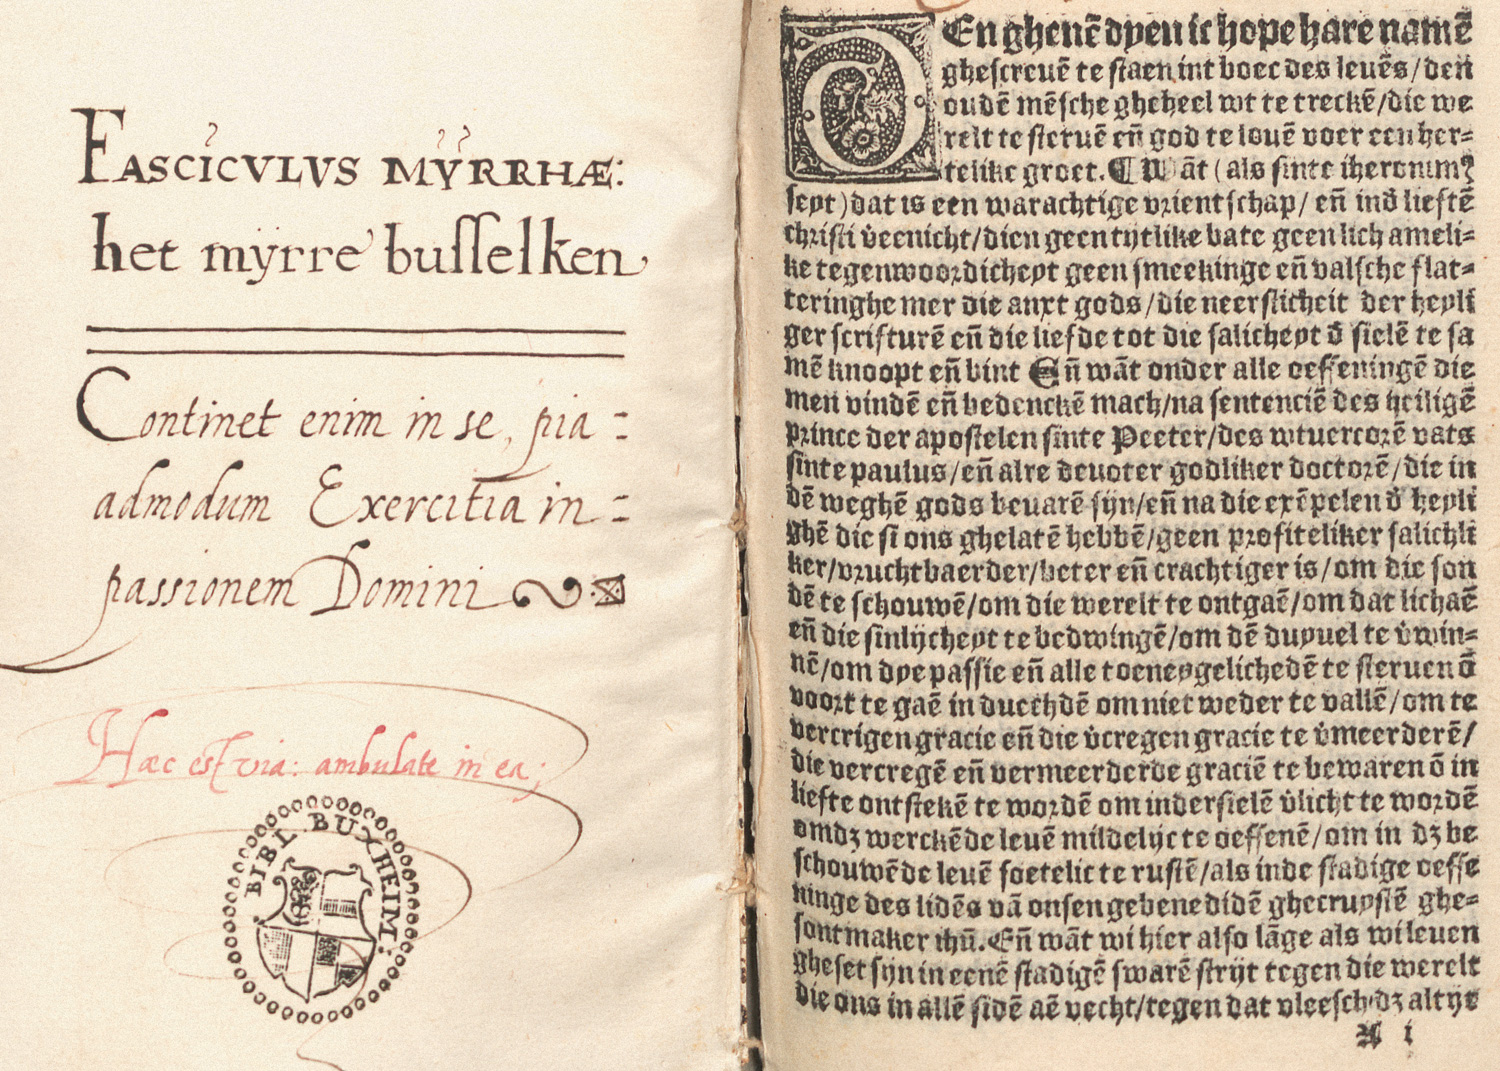 FASCICVLVS MŸRRHÆ:
het mÿrre busselken
Continet enim in se, pia-
admodum Exercitia in-
passionem Domini
Hæc est via: ambulate in ea;
BIBL. BUXHEIM.
En ghenē dyen ic hope hare namē
ghescreuē te staen int boec des leuēs/den
oudē mēsche gheheel wt te treckē/die we
relt te steruē eñ god te louē voer een her-
telike groet. ¶ Wāt (als sinte iheronimꝰ
seyt) dat is een warachtige vrientschap/ eñ ind̄ lieftē
christi v̄eenicht/dien geen tijtlike bate geen lich ameli-
ke tegenwoordicheyt geen smeekinge eñ valsche flat-
teringhe mer die anxt gods/die neersticheit der heyli
ger scrifturē eñ die liefde tot die salicheyt d̄ sielē te sa
mē knoopt eñ bint Eñ wāt onder alle oeffeningē die
men vindē eñ bedenckē mach/na sentenciē des heiligē
prince der apostelen sinte Peeter/des wtuercorē vats
sinte paulus/eñ alre deuoter godliker doctorē/die in
dē weghē gods beuarē sijn/eñ na die exēpelen d̄ heyli
ghē die si ons ghelatē hebbē/geen profiteliker salichli
ker/vruchtbaerder/beter eñ crachtiger is/om die son
dē te schouwē/om die werelt te ontgaē/om dat lichaē
eñ die sinlijcheyt te bedwingē/om dē duyuel te v̄win-
nē/om dye passie eñ alle toeneygelichedē te steruen ō
voort te gaē in duechdē om niet weder te vallē/om te
vercrigen gracie eñ die v̄cregen gracie te v̄meerderē/
die vercregē eñ vermeerderde graciē te bewaren ō in
liefte ontstekē te wordē om inder sielē v̄licht te wordē
omdꝫ werckēde leuē mildelijc te oeffenē/om in dꝫ be
schouwēde leuē soetelic te rustē/als inde stadige oeffe
ninge des lidēs vā onsen gebenedidē ghecruystē ghe-
sontmaker ihū. Eñ wāt wi hier also lāge als wi leuen
gheset sijn in eenē stadigē swarē strijt tegen die werelt
die ons in allē sidē aē vecht/tegen dat vleesch dꝫ altijt
A i